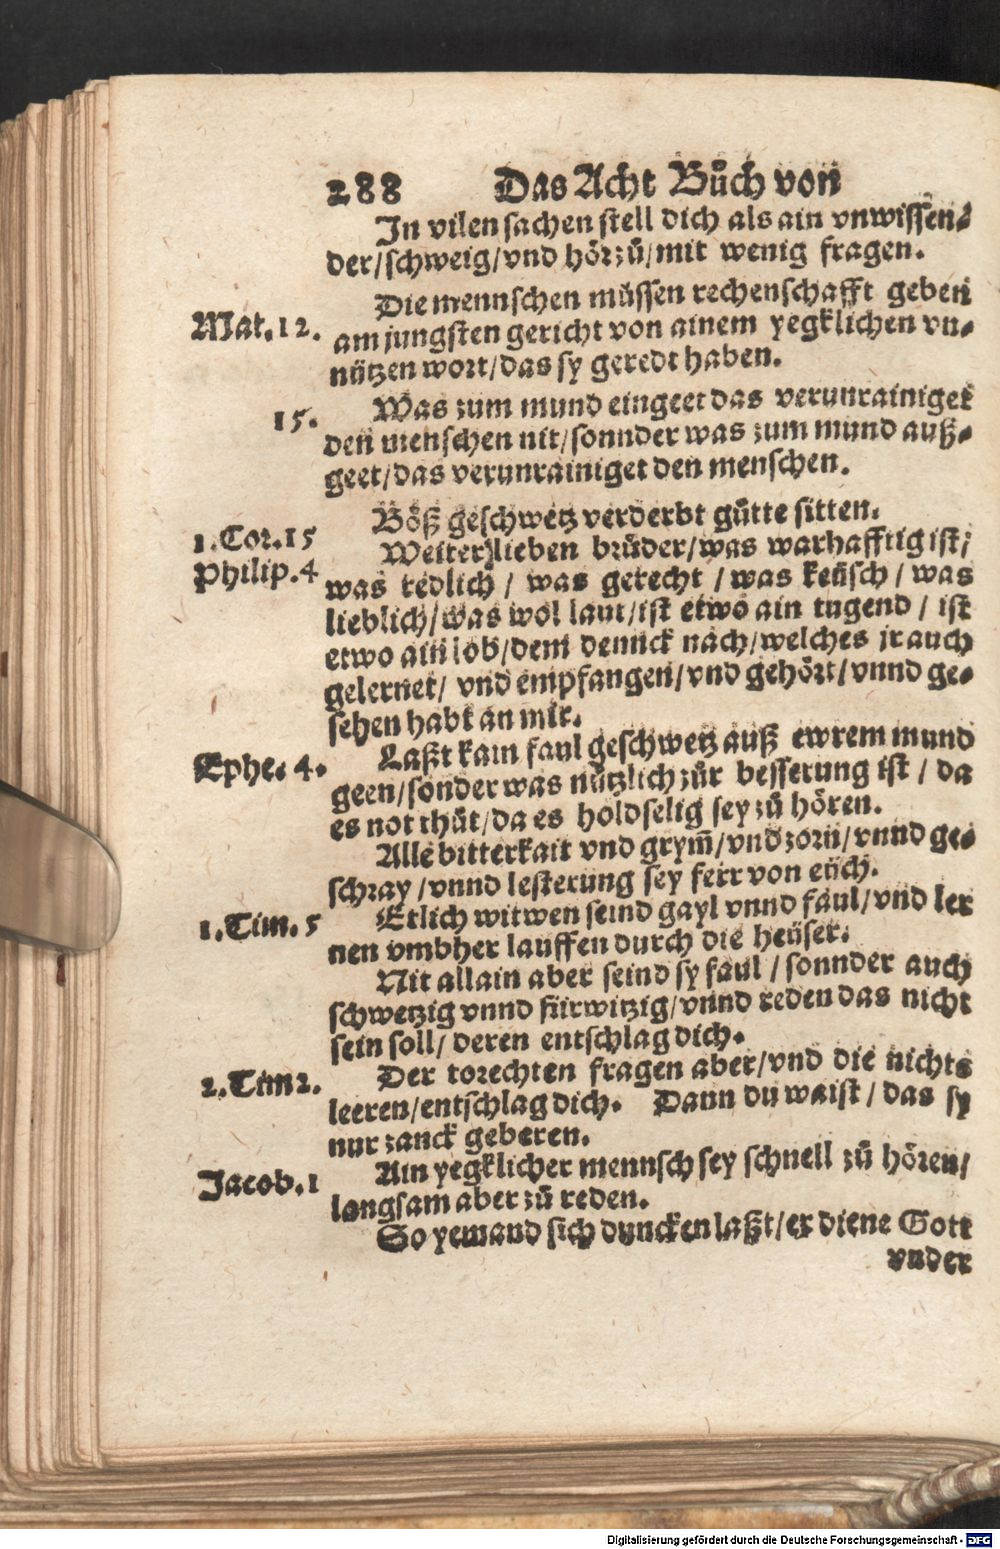 288 Das Acht Bůch von
In vilen sachen stell dich als ain vnwissen-
der/schweig/vnd hör zů/mit wenig fragen.
Die mennschen müssen rechenschafft geben
Mat.12. am jungsten gericht von ainem yegklichen vn-
nützen wort/das sy geredt haben.
Was zum mund eingeet das verunrainiget
15. den menschen nit/sonnder was zum mund auß-
geet/das verunrainiget den menschen.
Böß geschwetz verderbt gůtte sitten.
1.Cor.15 Weiter)lieben brüder/was warhafftig ist/
Philip.4 was redlich/ was gerecht/was keüsch/was
lieblich/was wol laut/ist etwo ain tugend/ ist
etwo ain lob/dem dennck nach/welches jr auch
gelernet/ vnd empfangen/vnd gehört/vnnd ge-
sehen habt an mir.
Ephe. 4. Laßt kain faul geschwetz auß ewrem mund
geen/sonder was nützlich zůr besserung ist/ da
es not thůt/da es holdselig sey zů hören.
Alle bitterkait vnd grym̃/vnd zorn/vnnd ge-
schray/vnnd lesterung sey ferr von eüch.
1.Tim.5 Etlich witwen seind gayl vnnd faul/vnd ler
nen vmbher lauffen durch die heüser.
Nit allain aber seind sy faul/sonnder auch
schwetzig vnnd fürwitzig/vnnd reden das nicht
sein soll/ deren entschlag dich.
2.Tim2. Der torechten fragen aber/vnd die nichts
leeren/entschlag dich. Dann du waist/das sy
nur zanck geberen.
Jacob.1 Ain yegklicher mennsch sey schnell zů hören/
langsam aber zů reden.
So yemand sich duncken laßt/er diene Gott
vnder
Digitalisierung gefördert durch die Deutsche Forschungsgemeinschaft - DFG